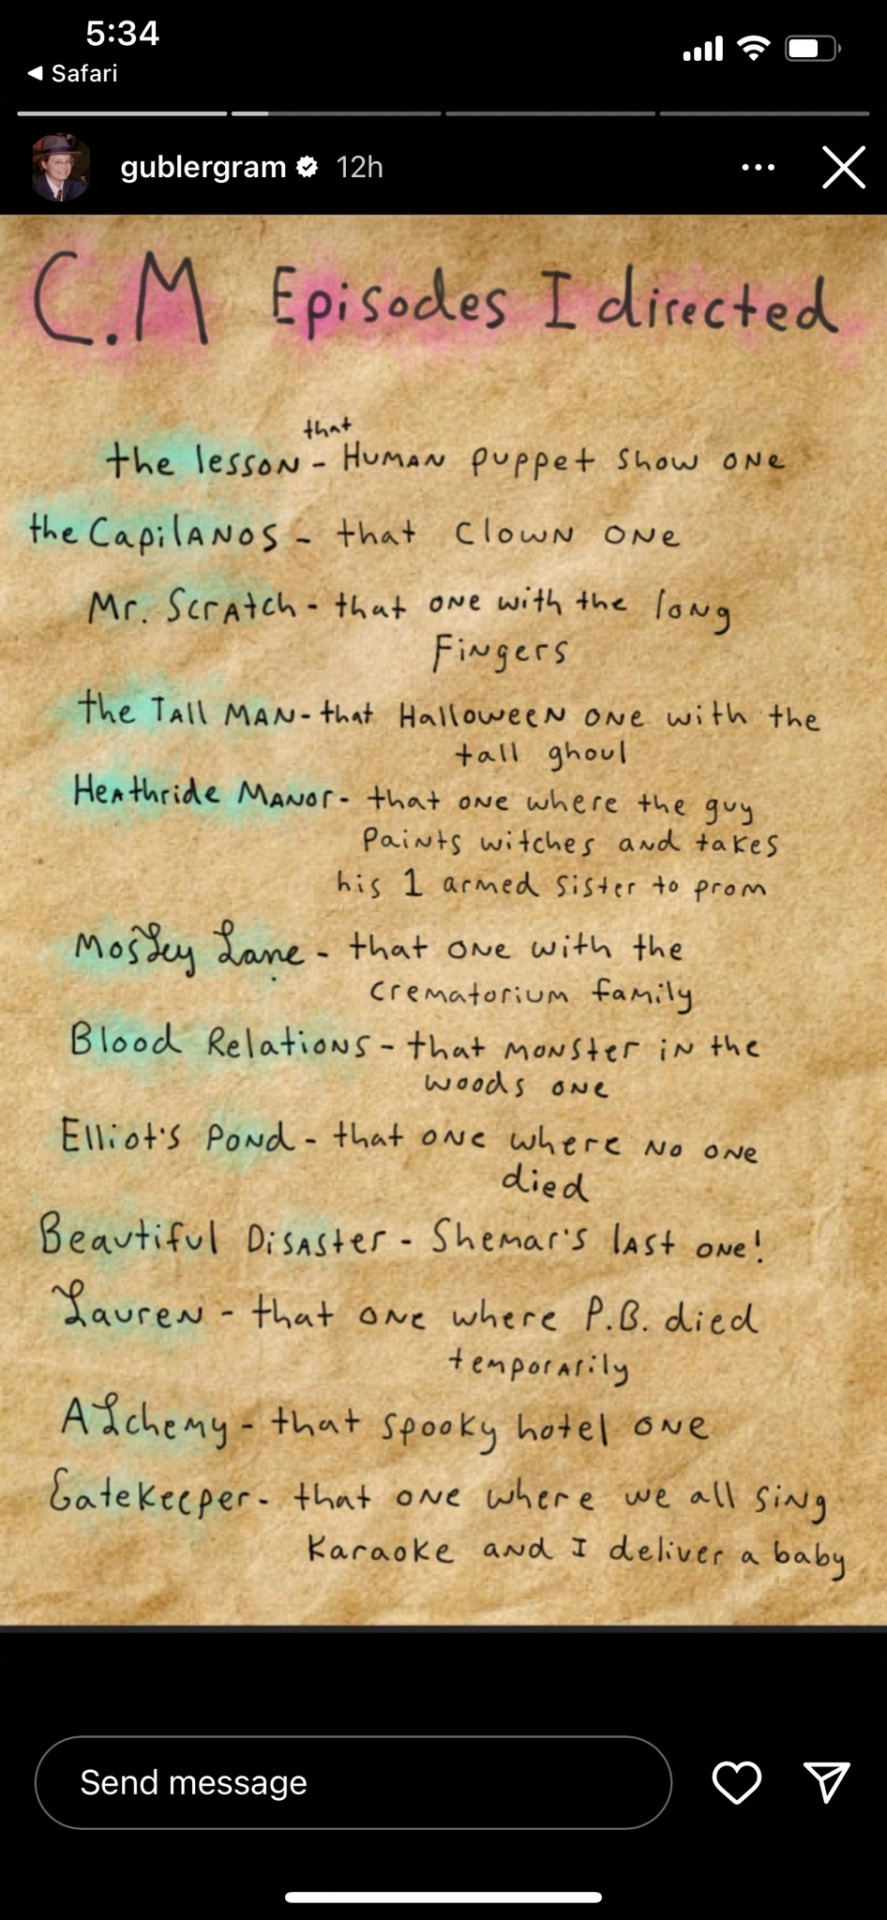 5:34
◀ Safari
gublergram 12h
C.M Episodes I directed
that
the lesson - Human puppet show one
the Capilanos - that clown one
Mr. Scratch - that one with the long
Fingers
the Tall Man - that Halloween one with the
tall ghoul
Heathride Manor - that one where the guy
Paints witches and takes
his 1 armed sister to prom
Mosley Lane - that one with the
crematorium family
Blood Relations - that monster in the
woods one
Elliot's Pond - that one where no one
died
Beautiful Disaster - Shemar's last one!
Lauren - that one where P.B. died
temporarily
Alchemy - that spooky hotel one
Gatekeeper - that one where we all sing
Karaoke and I deliver a baby
Send message